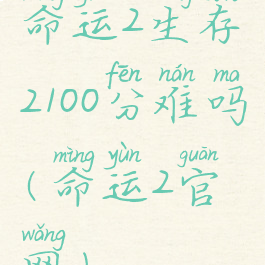 命运2生存
fēn nán ma
2100分难吗
mìng yùn guān
(命运2官
wǎng
网)